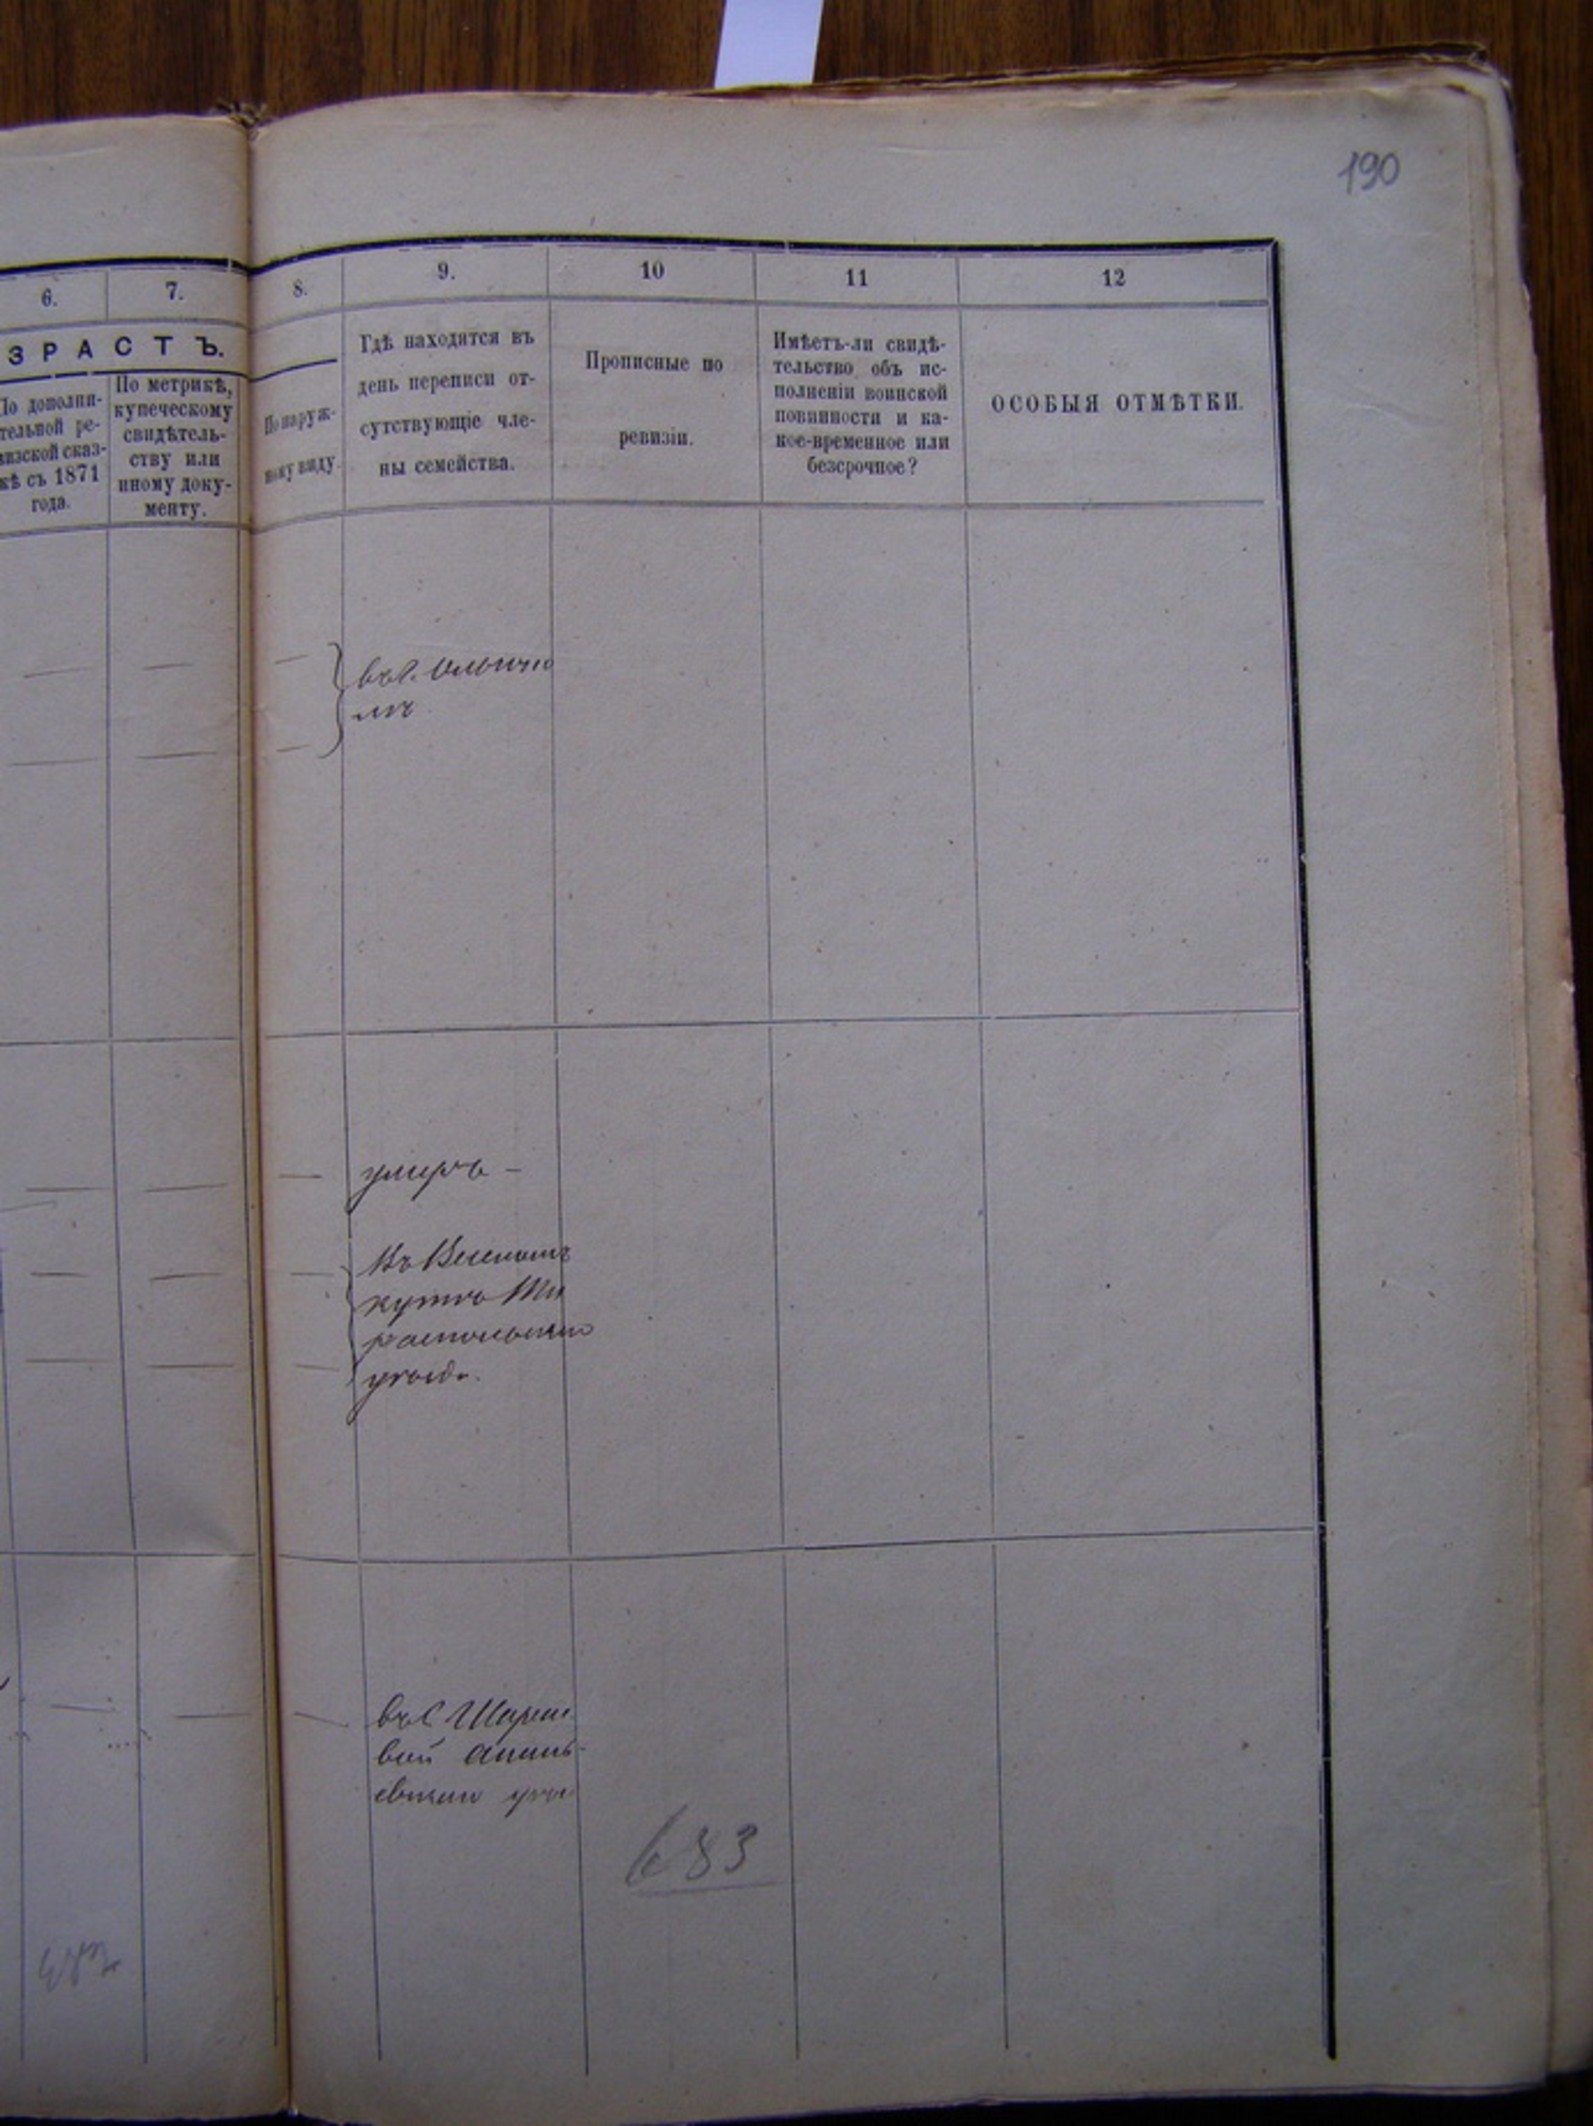 190
6.
7.
8.
9.
10
11
12
ЗРАСТЪ.
По дополни-
тельной ре-
визской сказ-
кѣ съ 1871
года.
По метрикѣ,
купеческому
свидѣтель-
ству или
иному доку-
менту.
По наруж-
ному виду.
Гдѣ находятся въ
день переписи от-
сутствующіе чле-
ны семейства.
Прописные по
ревизіи.
Имѣетъ-ли свидѣ-
тельство объ ис-
полненіи воинской
повинности и ка-
кое-временное или
безсрочное?
ОСОБЫЯ ОТМѢТКИ.
умеръ —
Въ
кутѣ Ти
распольскаго
уѣзд.
въ С
вой Анань-
евскаго
683